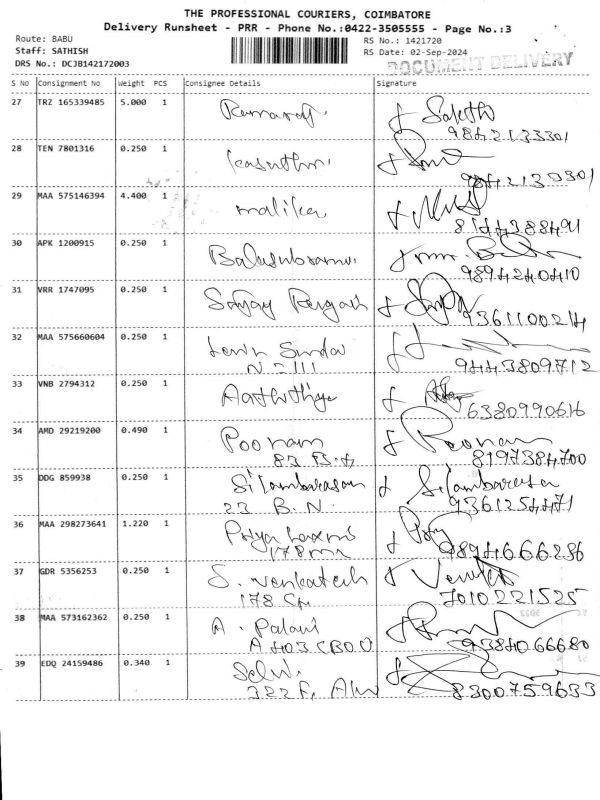 THE PROFESSIONAL COURIERS, COIMBATORE
Delivery Runsheet - PRR - Phone No.:0422-3505555 - Page No.:3
Route: BABU
RS No.: 1421720
Staff: SATHISH
RS Date: 02-Sep-2024
DRS No.: DCJB142172003
DOCUMENT DELIVERY
S No Consignment No Weight PCS Consignee Details Signature
27 TRZ 165339485 5.000 1
9842133301
28 TEN 7801316 0.250 1
9842133301
29 MAA 575146394 4.400 1 malika
8144388491
30 APK 1200915 0.250 1
9894240410
31 VRR 1747095 0.250 1 Sanjay
9361100214
32 MAA 575660604 0.250 1
9443809712
33 VNB 2794312 0.250 1
6380990616
34 AMD 29219200 0.490 1 Poonam Poonam
8197384700
35 DDG 859938 0.250 1 Silambarasan Silambarasan
23 B.N. 9361254471
36 MAA 298273641 1.220 1 Priya Laxmi
9894666286
37 GDR 5356253 0.250 1 S. Venkatesh
7010221525
38 MAA 573162362 0.250 1 A. Palani
A 403 CBOO 9384066680
39 EDQ 24159486 0.340 1 Selvi
8300759633